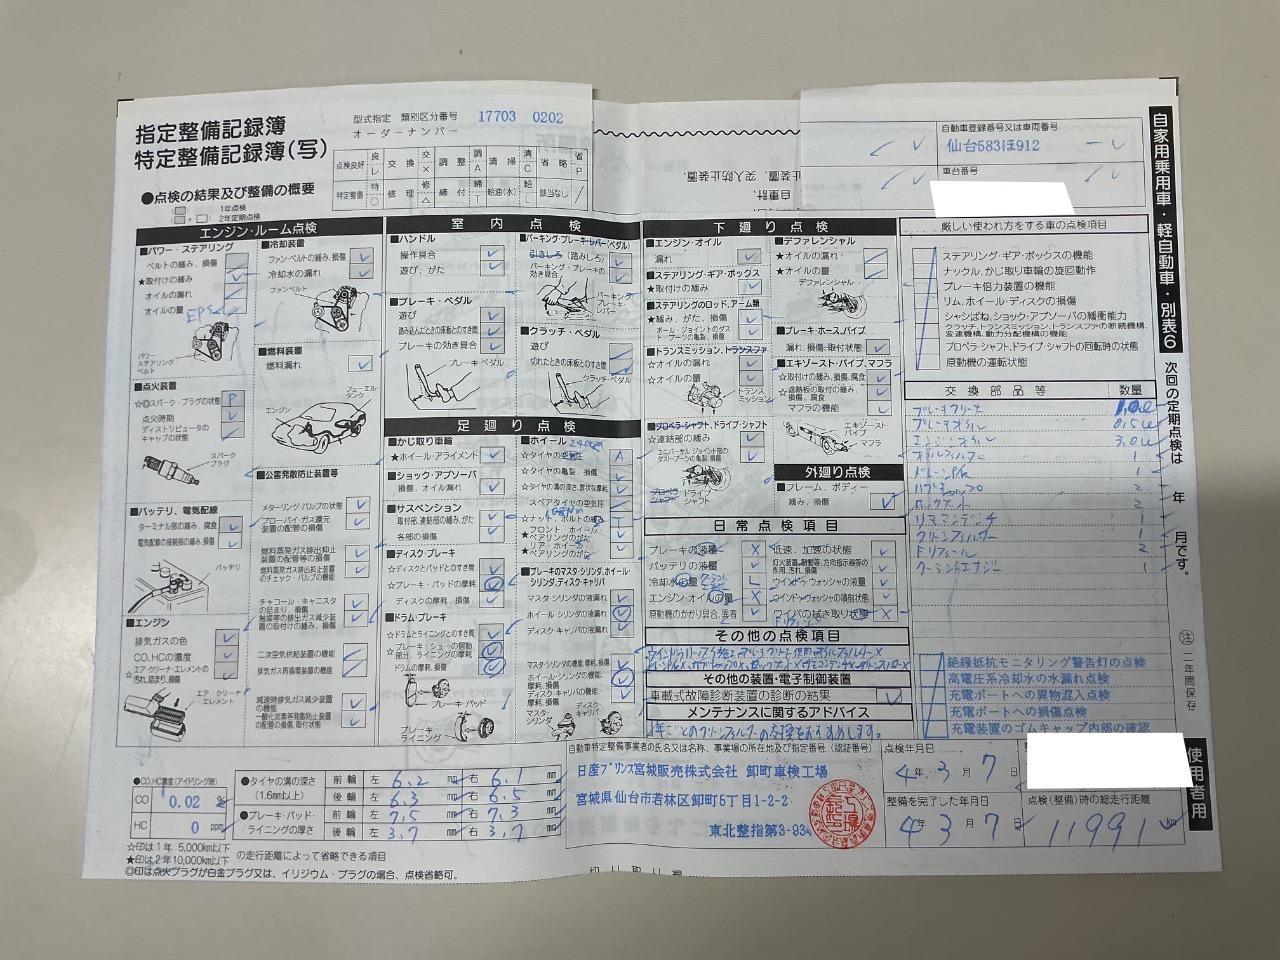 指定整備記録簿
特定整備記録簿(写)
型式指定 類別区分番号 17703 0202
オーダーナンバー
点検良好 レ 交換 × 調整 A 清掃 C 省略 P
特定整備 ○ 修理 △ 締付 T 給油(水) L 該当なし /
●点検の結果及び整備の概要
1年点検
2年定期点検
自動車登録番号又は車両番号
仙台583ほ912
車台番号
自家用乗用車・軽自動車・別表6
次回の定期点検は 年 月です。
注 二年間保存
使用者用
エンジン・ルーム点検
■パワー・ステアリング
ベルトの緩み、損傷
★取付けの緩み
オイルの漏れ
オイルの量
EPS
パワーステアリングベルト
■点火装置
☆◎スパーク・プラグの状態 P
点火時期
ディストリビュータのキャップの状態
スパークプラグ
■バッテリ、電気配線
ターミナル部の緩み、腐食
電気配線の接続部の緩み、損傷
バッテリ
■エンジン
排気ガスの色
CO、HCの濃度
エア・クリーナ・エレメントの汚れ、詰まり、損傷
エア・クリーナエレメント
■冷却装置
ファン・ベルトの緩み、損傷
冷却水の漏れ
ファンベルト
■燃料装置
燃料漏れ
フューエルタンク
エンジン
■公害発散防止装置等
メターリング・バルブの状態
ブローバイ・ガス還元装置の配管の損傷
燃料蒸発ガス排出抑止装置の配管等の損傷
燃料蒸発ガス排出抑止装置のチェック・バルブの機能
チャコール・キャニスタの詰まり、損傷
触媒等の排出ガス減少装置の取付けの緩み、損傷
二次空気供給装置の機能
排気ガス再循環装置の機能
減速時排気ガス減少装置の機能
一酸化炭素等発散防止装置の配管の損傷、取付状態
室内点検
■ハンドル
操作具合
遊び、がた
■ブレーキ・ペダル
遊び
踏み込んだときの床板とのすき間
ブレーキの効き具合
ブレーキ・ペダル
■パーキング・ブレーキ・レバー(ペダル)
引きしろ(踏みしろ)
パーキング・ブレーキの効き具合
パーキングブレーキレバー
■クラッチ・ペダル
遊び
切れたときの床板とのすき間
クラッチ・ペダル
足廻り点検
■かじ取り車輪
★ホイール・アライメント
■ショック・アブソーバ
損傷、オイル漏れ
■サスペンション
取付部、連結部の緩み、がた
各部の損傷
■ディスク・ブレーキ
☆ディスクとパッドとのすき間
☆ブレーキ・パッドの摩耗
ディスクの摩耗、損傷
■ドラム・ブレーキ
☆ドラムとライニングとのすき間
☆ブレーキ・シューの摺動部分、ライニングの摩耗
ドラムの摩耗、損傷
ブレーキ・パッド
ブレーキ・ライニング
■ホイール
☆タイヤの空気圧 A
☆タイヤの亀裂、損傷
☆タイヤの溝の深さ、異状な摩耗
スペアタイヤの空気圧
☆ナット、ボルトの緩み T
★フロント・ホイール・ベアリングのがた
★リア・ホイール・ベアリングのがた
■ブレーキのマスタ・シリンダ、ホイール・シリンダ、ディスク・キャリパ
マスタ・シリンダの液漏れ
ホイール・シリンダの液漏れ
ディスク・キャリパの液漏れ
マスタ・シリンダの機能、摩耗、損傷
ホイール・シリンダの機能、摩耗、損傷
ディスク・キャリパの機能、摩耗、損傷
マスタシリンダ
ディスクキャリパ
下廻り点検
■エンジン・オイル
漏れ
■ステアリング・ギア・ボックス
★取付けの緩み
■ステアリングのロッド、アーム類
★緩み、がた、損傷
ボール・ジョイントのダスト・ブーツの亀裂、損傷
■トランスミッション、トランスファ
☆オイルの漏れ
☆オイルの量
トランスミッション
■プロペラ・シャフト、ドライブ・シャフト
☆連結部の緩み
ユニバーサル・ジョイント部のダスト・ブーツの亀裂、損傷
プロペラシャフト
ドライブシャフト
■デファレンシャル
★オイルの漏れ
★オイルの量
デファレンシャル
■ブレーキ・ホース、パイプ
漏れ、損傷、取付状態
■エキゾースト・パイプ、マフラ
☆取付けの緩み、損傷、腐食
☆遮熱板の取付の緩み、損傷、腐食
マフラの機能
エキゾーストパイプ
マフラ
外廻り点検
■フレーム、ボディー
緩み、損傷
日常点検項目
ブレーキの液量 ×
バッテリの液量
冷却水の量 L
エンジン・オイルの量 ×
原動機のかかり具合、異音
低速、加速の状態
灯火装置、制動等、方向指示器等の作用、汚れ、損傷
ウインドウォッシャの液量
ウインドウォッシャの噴射状態
ワイパの拭き取り状態 ×
その他の点検項目
その他の装置・電子制御装置
車載式故障診断装置の診断の結果
メンテナンスに関するアドバイス
1年ごとのクリーンフィルターの交換をおすすめします。
厳しい使われ方をする車の点検項目
ステアリング・ギア・ボックスの機能
ナックル、かじ取り車輪の旋回動作
ブレーキ倍力装置の機能
リム、ホイール・ディスクの損傷
シャシばね、ショック・アブソーバの緩衝能力
クラッチ、トランスミッション、トランスファの断続機構、変速機構、動力分配機構の機能
プロペラ・シャフト、ドライブ・シャフトの回転時の状態
原動機の運転状態
交換部品等 数量
ブレーキクリーナ
ブレーキオイル 0.5ℓ
エンジンオイル 3.0ℓ
オイルフィルター 1
ドレンP/K 1
2
2
1
クリーンフィルター 1
2
1
絶縁抵抗モニタリング警告灯の点検
高電圧系冷却水の水漏れ点検
充電ポートへの異物混入点検
充電ポートへの損傷点検
充電装置のゴムキャップ内部の確認
●CO、HC濃度(アイドリング時)
CO 0.02 %
HC 0 ppm
●タイヤの溝の深さ(1.6mm以上)
前輪 左 6.2 mm 右 6.1 mm
後輪 左 6.3 mm 右 6.5 mm
●ブレーキ・パッド・ライニングの厚さ
前輪 左 7.5 mm 右 7.3 mm
後輪 左 3.7 mm 右 3.7 mm
☆印は1年 5,000km以下
★印は2年10,000km以下 の走行距離によって省略できる項目
◎印は点火プラグが白金プラグ又は、イリジウム・プラグの場合、点検省略可。
自動車特定整備事業者の氏名又は名称、事業場の所在地及び指定番号(認証番号)
日産プリンス宮城販売株式会社 卸町車検工場
宮城県仙台市若林区卸町5丁目1-2-2
東北整指第3-93
点検年月日
4年 3月 7日
整備を完了した年月日
4年 3月 7日
点検(整備)時の総走行距離
11991 km
切り取り線